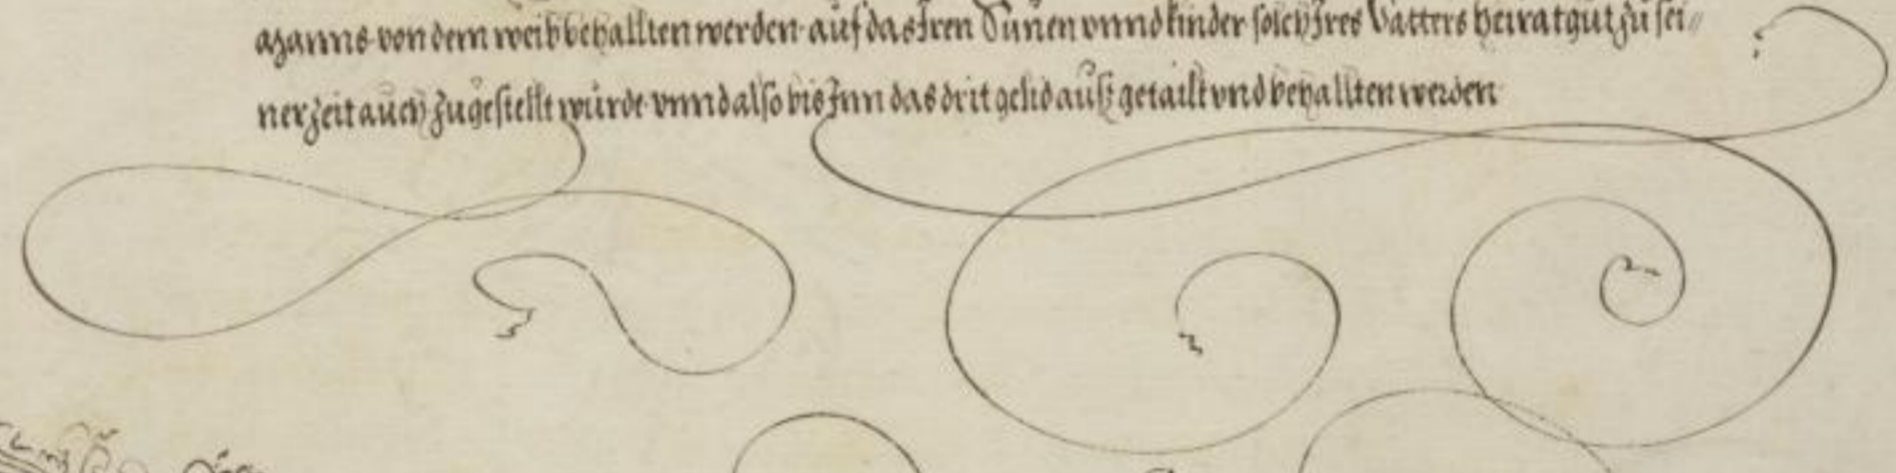 manns von dem weib behallten werden auf das Iren Sunen vnnd kinder solch Ires Vatters heiratgut zu sei⸗
ner zeit auch zugestellt wurde vnnd also bis Inn das drit gelid ausz getailt vnd behallten werden